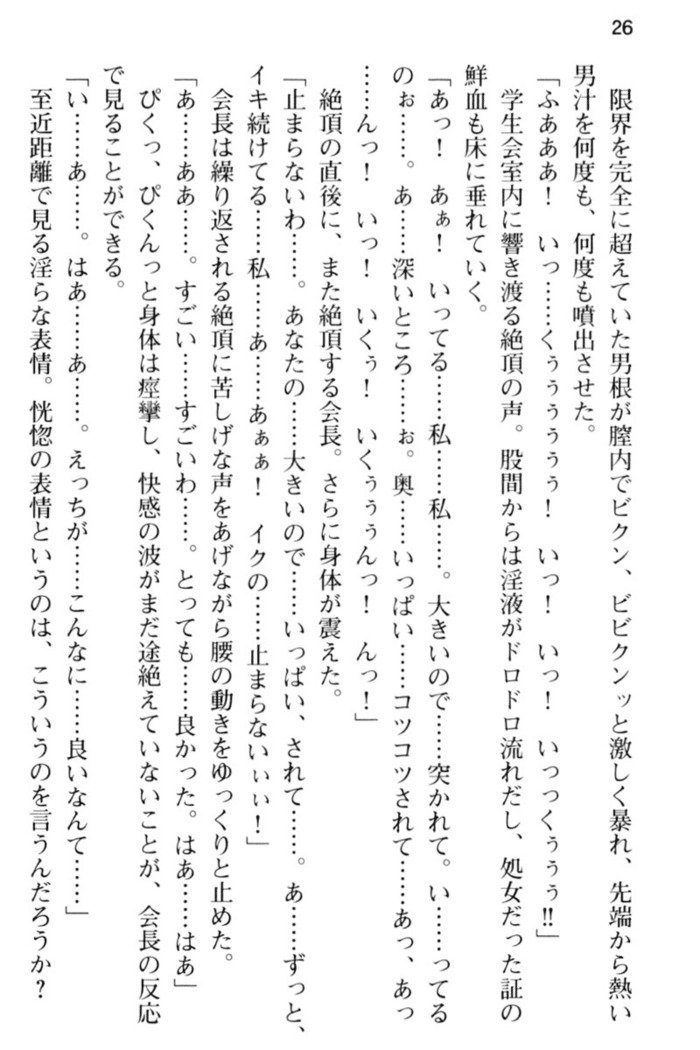 26
限界を完全に超えていた男根が膣内でビクン、ビビクンッと激しく暴れ、先端から熱い
男汁を何度も、何度も噴出させた。
「ふあああ！　いっ……くぅぅぅぅぅ！　いっ！　いっ！　いっっくぅぅぅ!!」
学生会室内に響き渡る絶頂の声。股間からは淫液がドロドロ流れだし、処女だった証の
鮮血も床に垂れていく。
「あっ！　あぁ！　いってる……私……私……。大きいので……突かれて。い……ってる
のぉ……。あ……深いところ……ぉ。奥……いっぱい……コツコツされて……あっ、あっ
……んっ！　いっ！　いくぅ！　いくぅぅぅんっ！　んっ！」
絶頂の直後に、また絶頂する会長。さらに身体が震えた。
「止まらないわ……。あなたの……大きいので……いっぱい、されて……。あ……ずっと、
イキ続けてる……私……あ……あぁぁ！　イクの……止まらないぃぃ！」
会長は繰り返される絶頂に苦しげな声をあげながら腰の動きをゆっくりと止めた。
「あ……ああ……。すごい……すごいわ……。とっても……良かった。はあ……はあ」
ぴくっ、ぴくんっと身体は痙攣し、快感の波がまだ途絶えていないことが、会長の反応
で見ることができる。
「い……あ……。はあ……あ……。えっちが……こんなに……良いなんて……」
至近距離で見る淫らな表情。恍惚の表情というのは、こういうのを言うんだろうか？